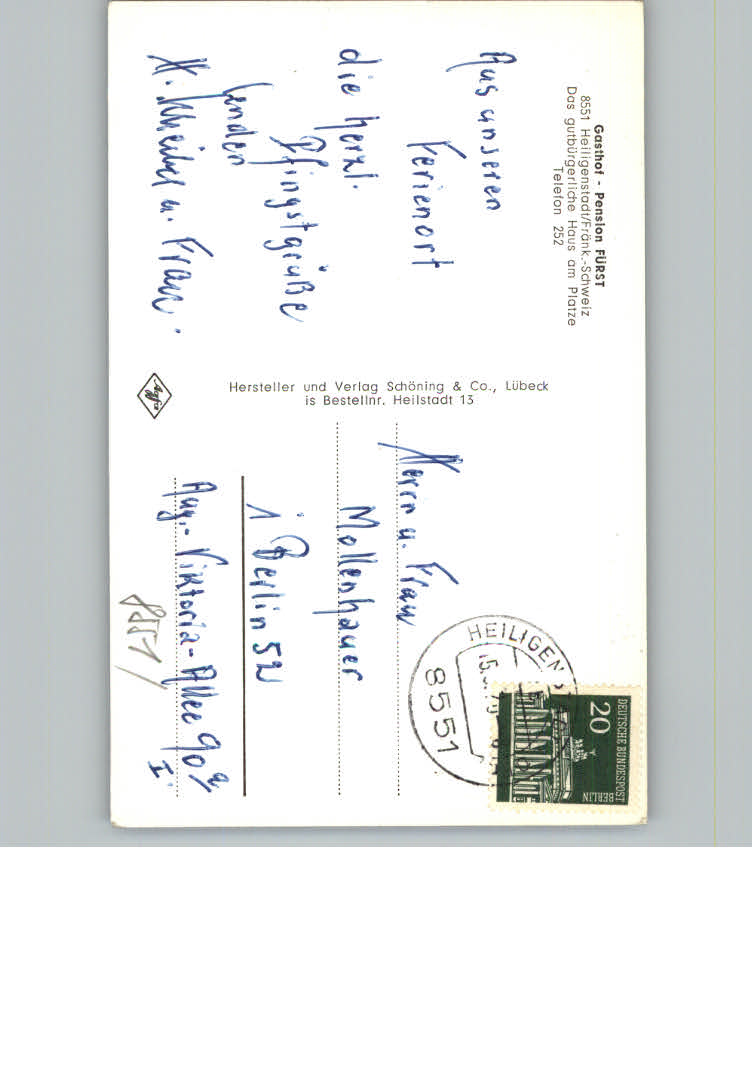 Gasthof - Pension FÜRST
8551 Heiligenstadt/Fränk.-Schweiz
Das gutbürgerliche Haus am Platze
Telefon 252
Aus unseren
Ferienort
die herzl.
Pfingstgrüße
senden
H. Scheibel u. Frau.
Hersteller und Verlag Schöning & Co., Lübeck
is Bestellnr. Heilstadt 13
Agfa
Herrn u. Frau
Mollenhauer
1 Berlin 52
Aug.- Viktoria- Allee 90a/
I.
8551/
HEILIGEN
8551
DEUTSCHE BUNDESPOST
BERLIN
20